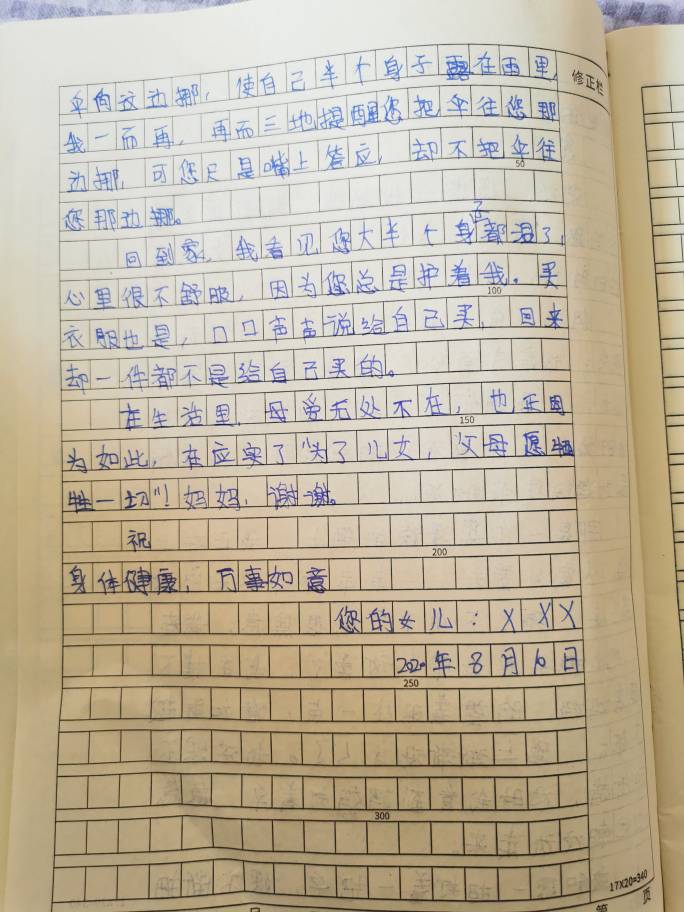 伞向这边挪，使自己半个身子露在雨里，
修正栏
我一而再，再而三地提醒您把伞往您那
边挪，可您只是嘴上答应，却不把伞往
50
您那边挪。
回到家，我看见您大半个身子都湿了，
心里很不舒服，因为您总是护着我。买
100
衣服也是，口口声声说给自己买，回来
却一件都不是给自己买的。
在生活里，母爱无处不在，也正因
150
为如此，在应实了“为了儿女，父母愿牺
牲一切”！妈妈，谢谢。
祝
200
身体健康，万事如意
您的女儿：XXX
2020年8月10日
250
300
17X20=340
第 页